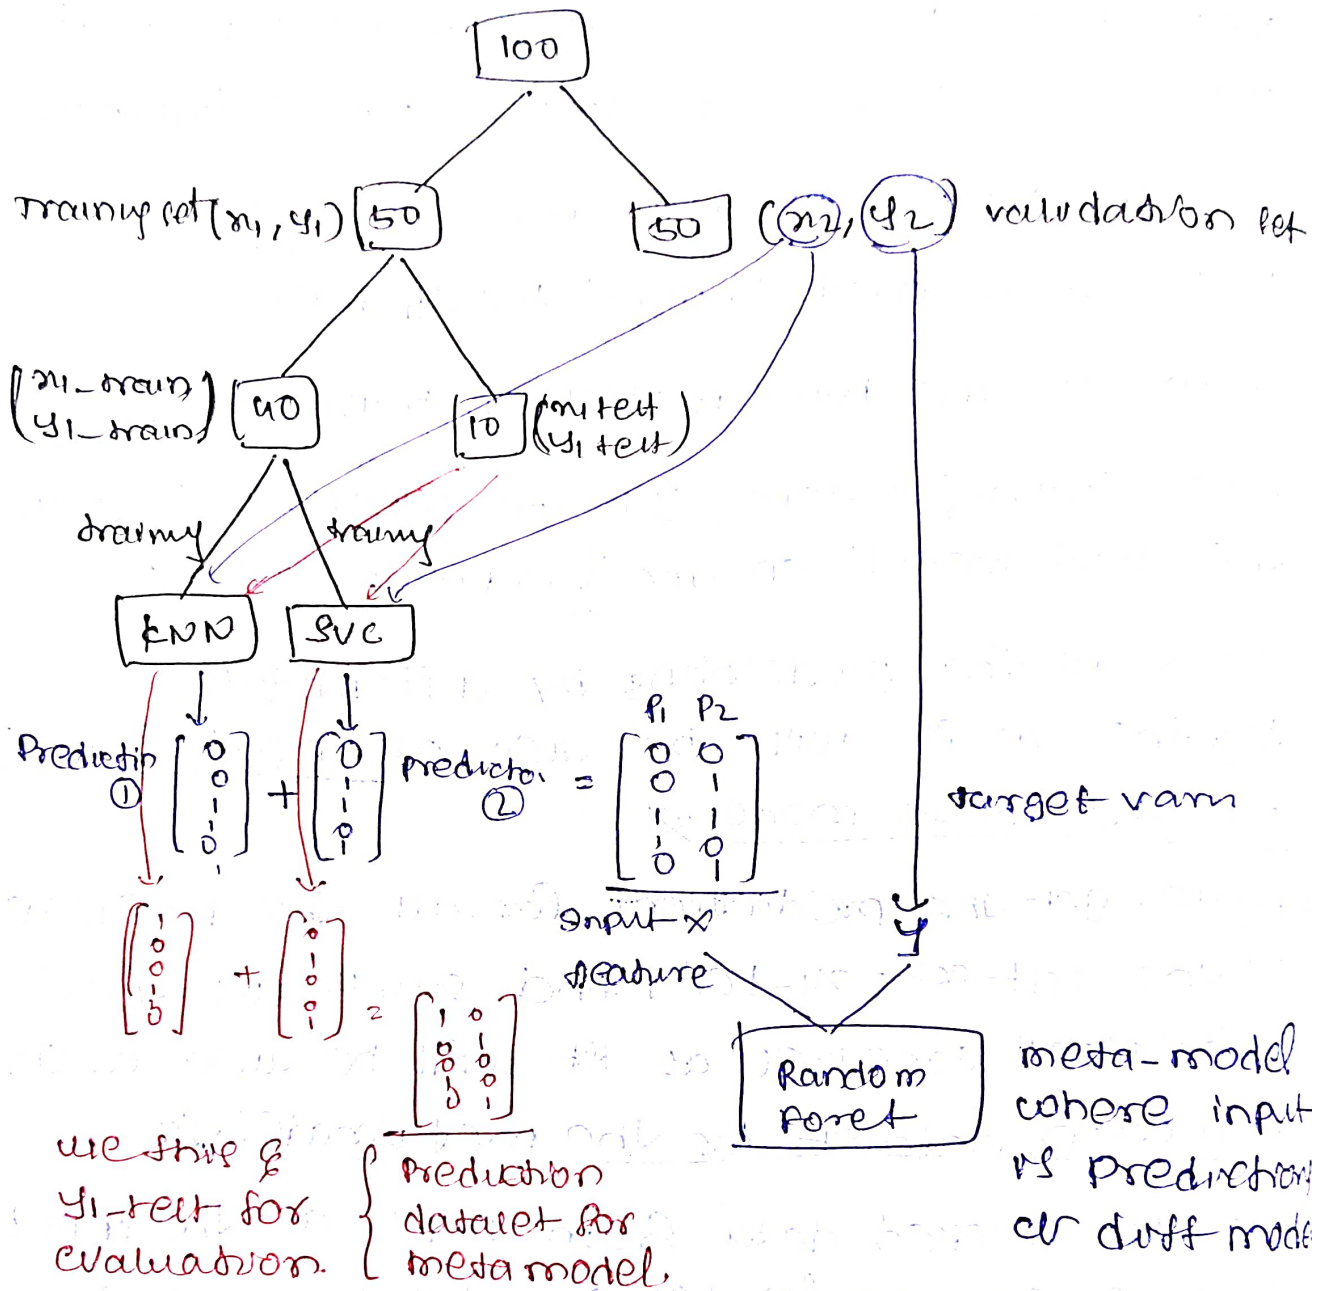 100
Training set (x1, y1) 50
50 (x2, y2) validation set
(x1_train, y1_train) 40
10 (x1 test y1 test)
training training
KNN SVC
P1 P2
Prediction ① [0 0 1 1 0 1] + [0 1 1 0 1] prediction ② = [0 0 0 1 1 1 1 0 0 1]
target varn
[1 0 0 1 0] + [0 1 0 0 1] = [1 0 0 1 0 0 1 0 0 1]
Input x
feature
y
Random
Foret
meta-model
where input
is prediction
of diff mode
use this &
y1-test for
evaluation.
Prediction
dataset for
meta model.